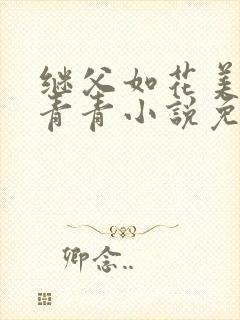 继父如花美
青青小说免
卿念..